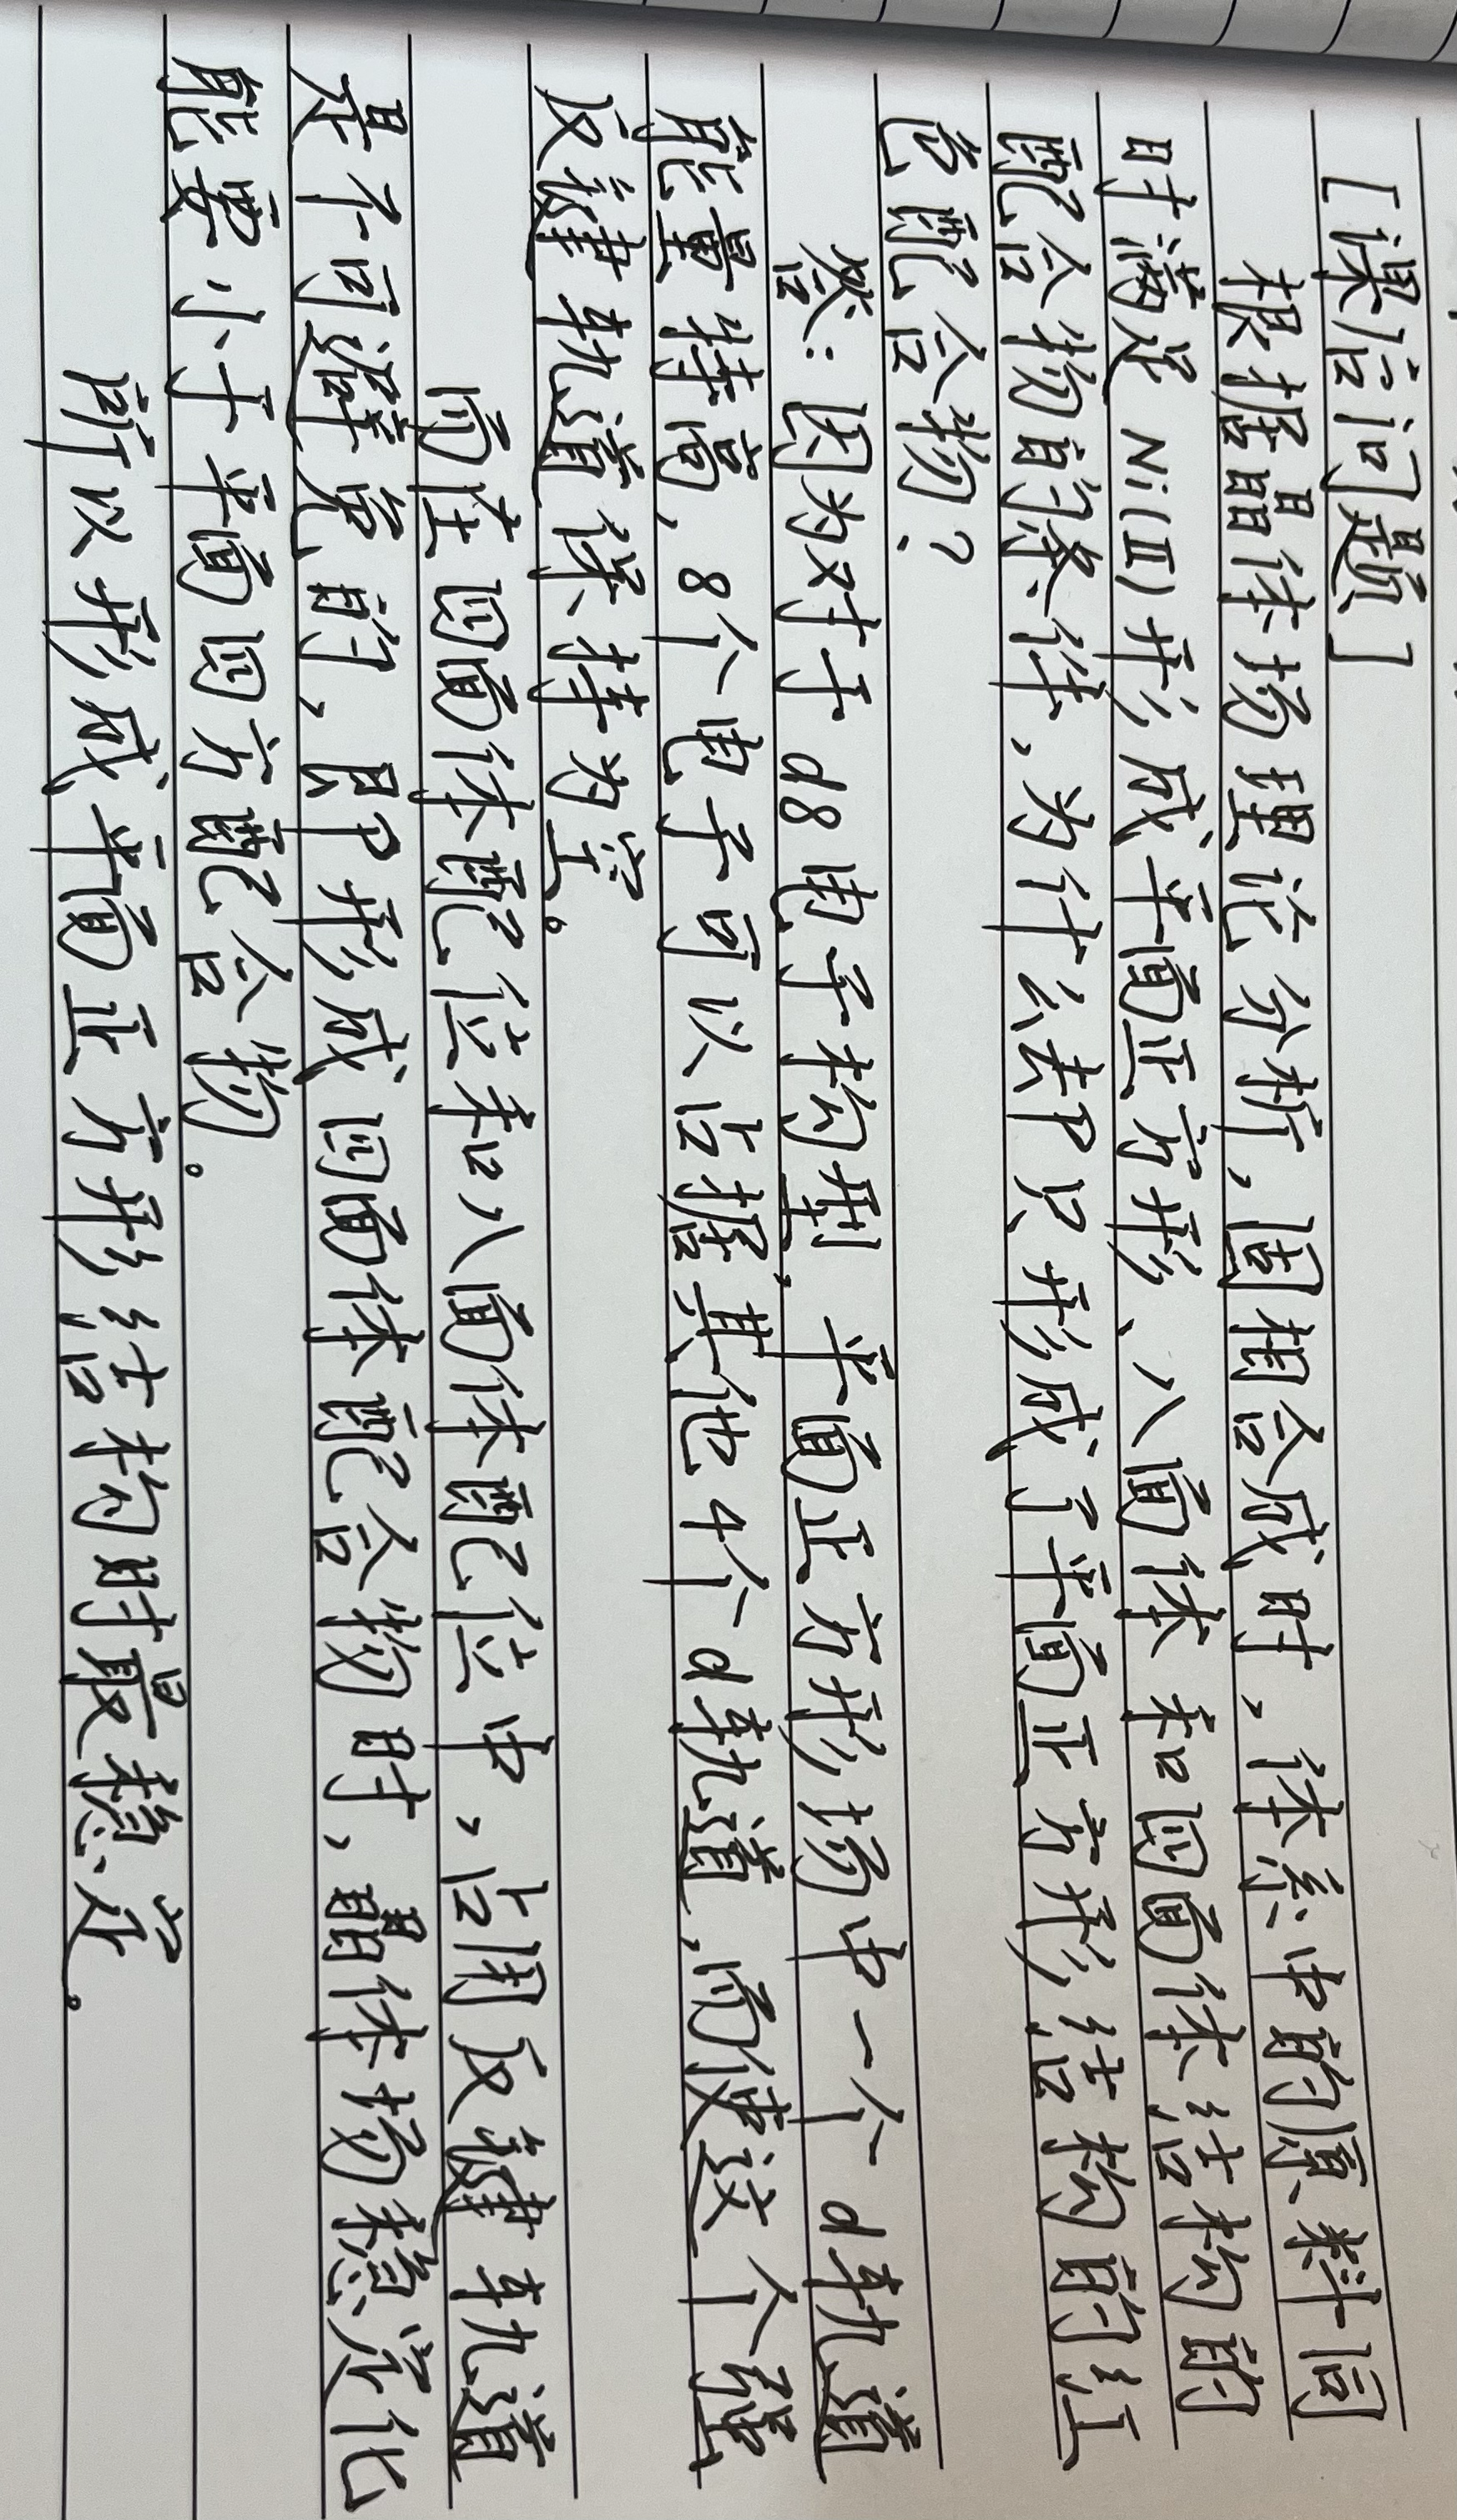 [课后问题]
根据晶体场理论分析,固相合成时,体系中的原料同
时满足Ni(II)形成平面正方形、八面体和四面体结构的
配合物的条件,为什么却只形成了平面正方形结构的红
色配合物?
答:因为对于d8电子构型,平面正方形场中一个d轨道
能量特高,8个电子可以占据其他4个d轨道,而使这个强
反键轨道保持为空。
而在四面体配位和八面体配位中,占用反键轨道
是不可避免的,即形成四面体配合物时,晶体场稳定化
能要小于平面四方配合物。
所以形成平面正方形结构时最稳定。